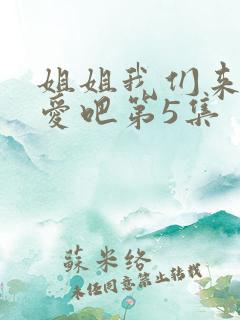 姐姐我们来
爱吧第5集
蘇米络
未经同意禁止转载